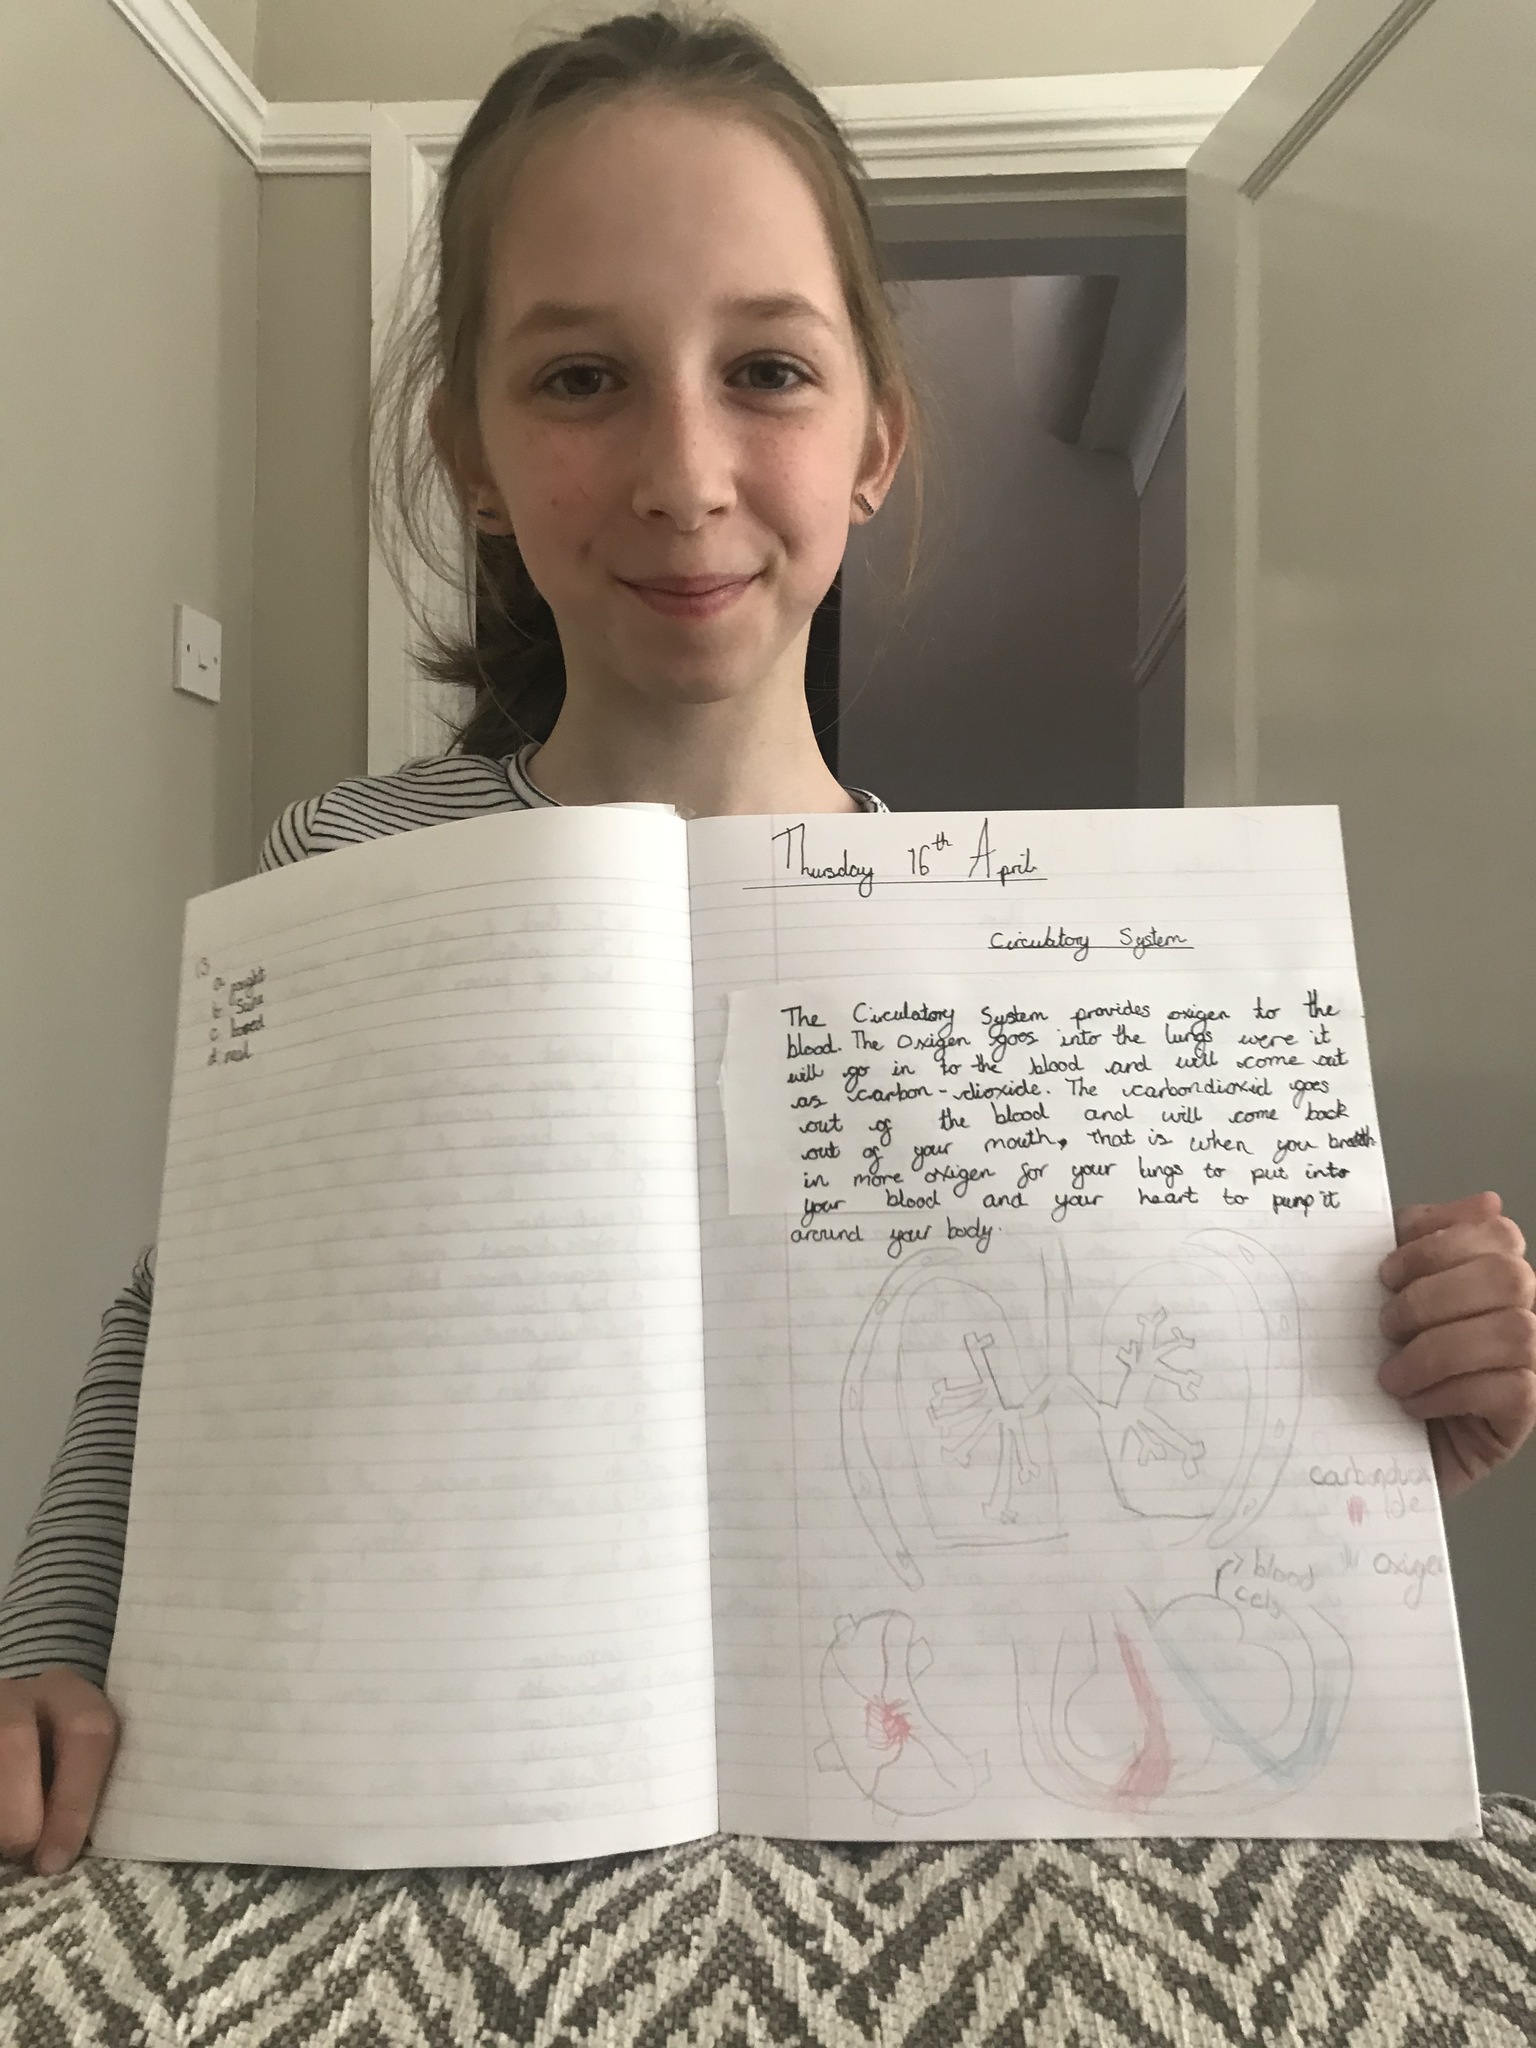 13
a
b
c
d
Thursday 16th April
Circulatory System
The Circulatory System provides oxigen to the
blood. The Oxigen goes into the lungs were it
will go in to the blood and will come out
as carbon-dioxide. The carbondioxid goes
out of the blood and will come back
out of your mouth, that is when you breath
in more oxigen for your lungs to put into
your blood and your heart to pump it
around your body.
oxigen
blood
cels